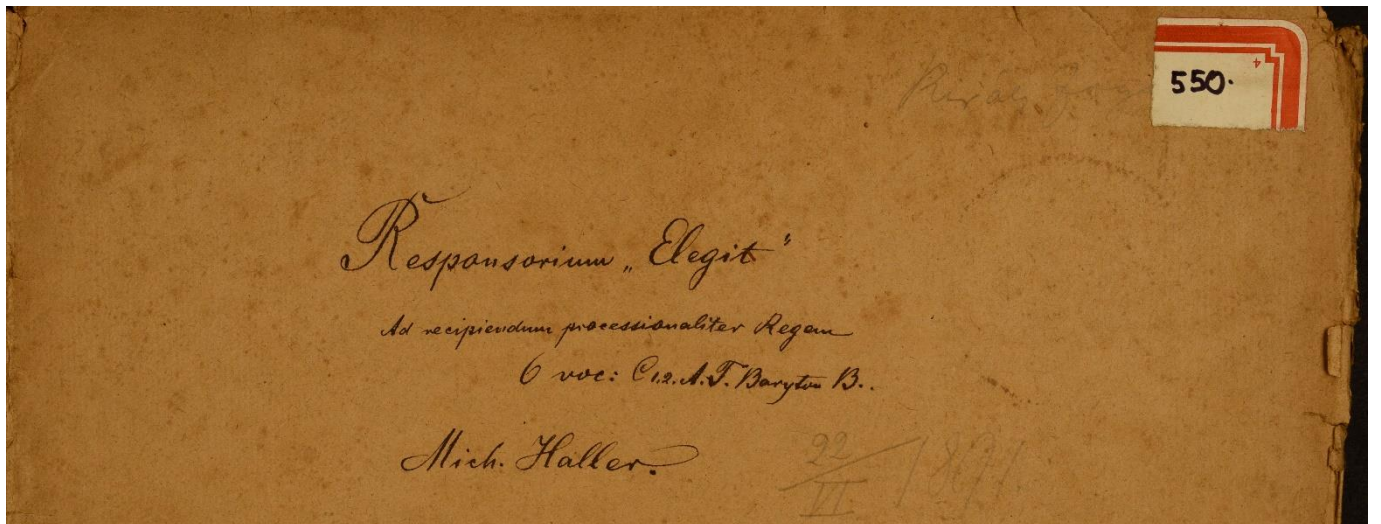 550.
4
Responsorium „Elegit“
Ad recipiendum processionaliter Regem
6 voc: C 1.2. A. T. Baryton B..
Mich. Haller.
22
VI